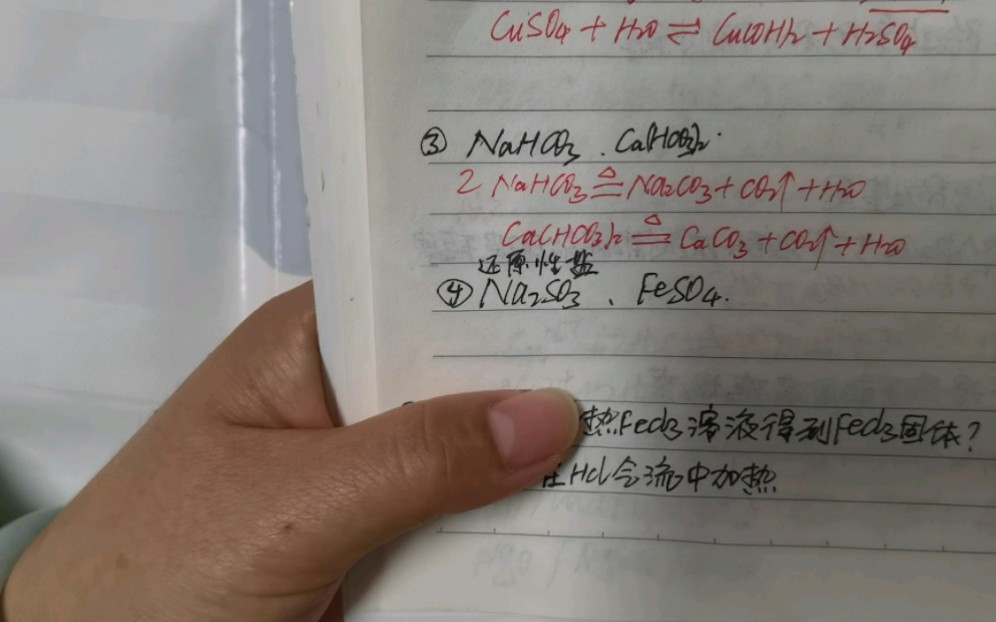 CuSO₄ + H₂O ⇌ Cu(OH)₂ + H₂SO₄
③ NaHCO₃ . Ca(HCO₃)₂.
2 NaHCO₃ ≜ Na₂CO₃ + CO₂↑ + H₂O
Ca(HCO₃)₂ ≜ CaCO₃ + CO₂↑ + H₂O
还原性盐
④ Na₂SO₃ 、 FeSO₄.
热FeCl₃溶液得到FeCl₃固体?
在HCl气流中加热